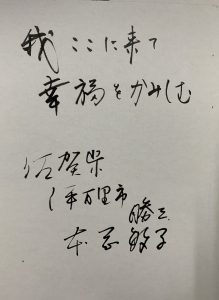 我ここに来て
幸福をかみしむ
佐賀県
伊万里市
勝
本 敏子